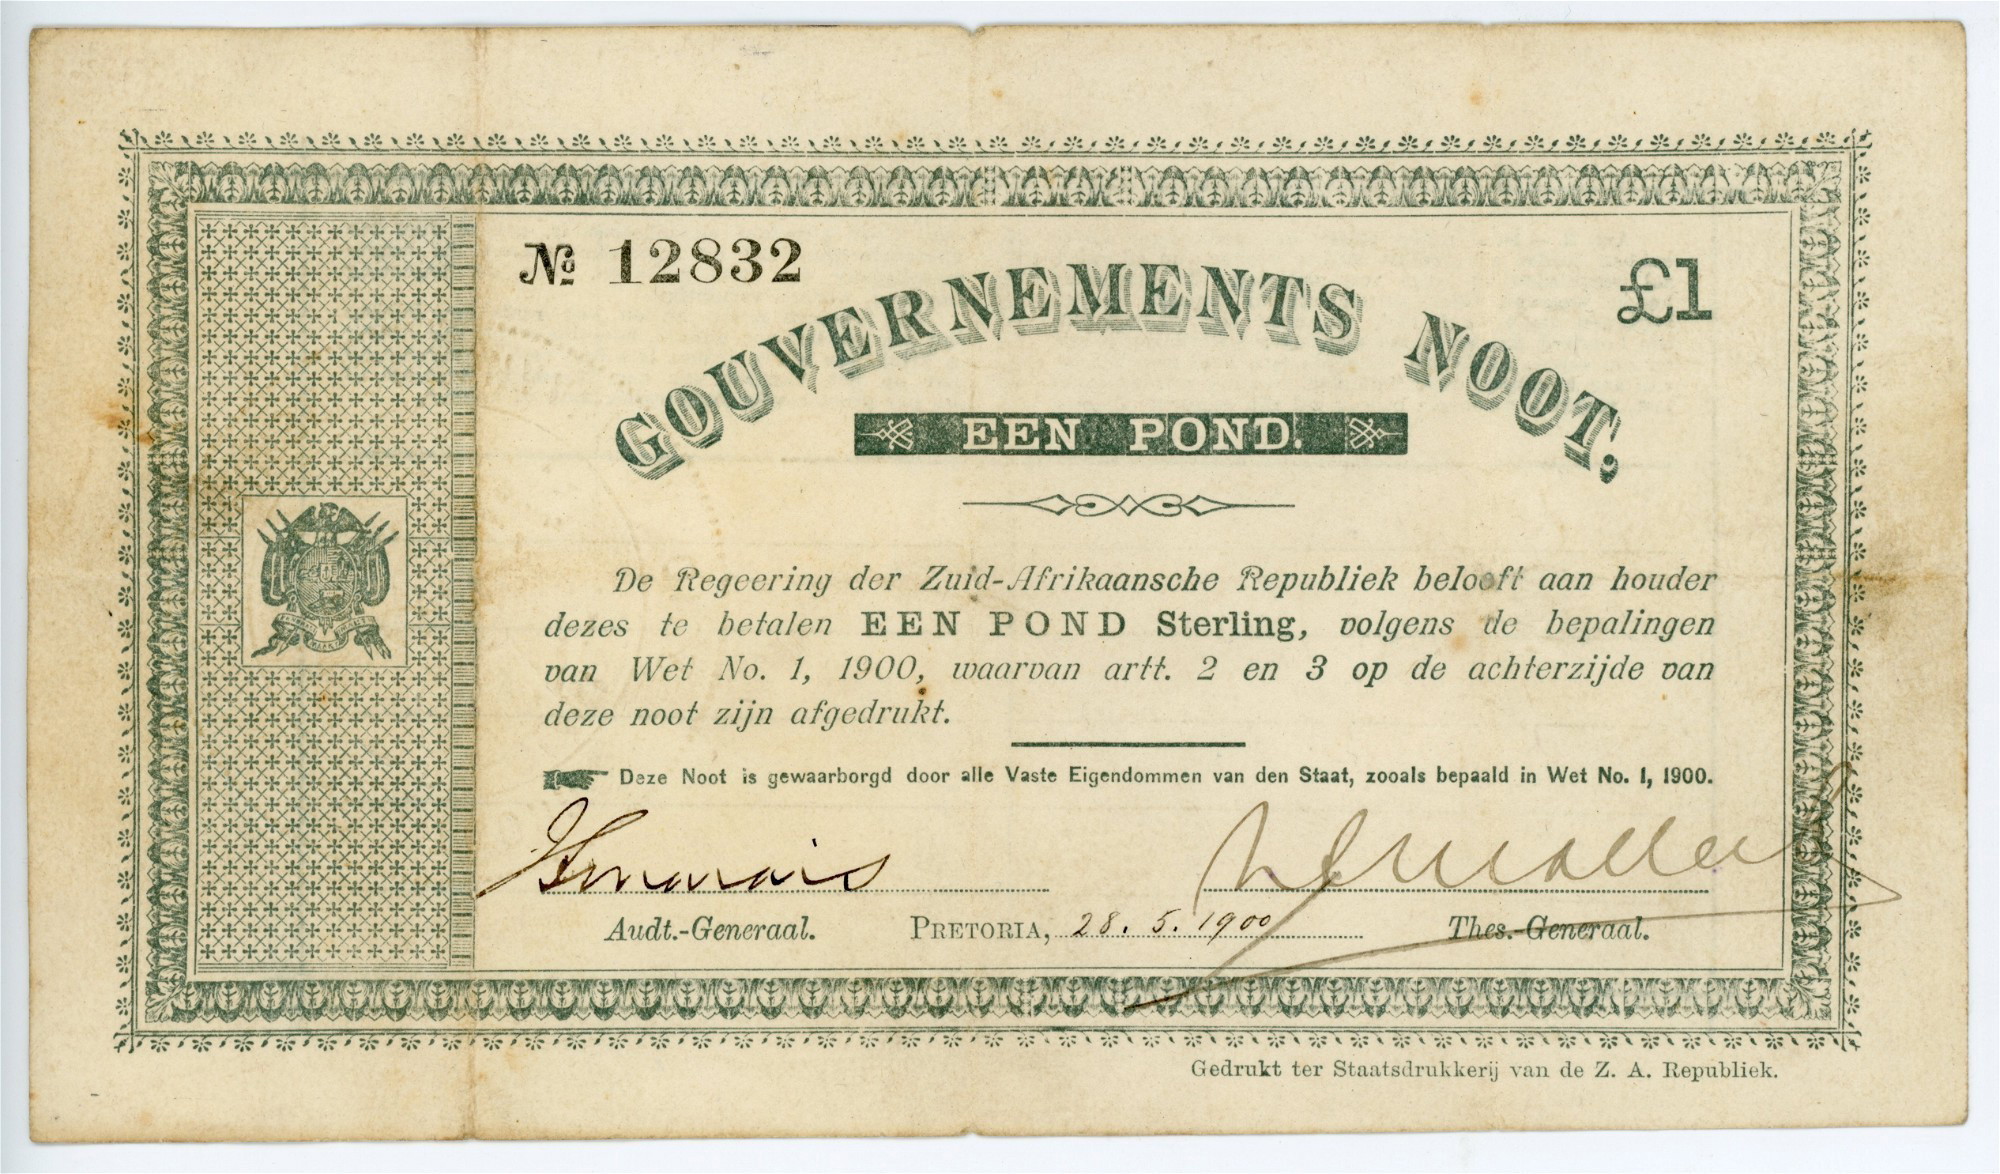 № 12832
£1
GOUVERNEMENTS NOOT,
EEN POND.
De Regeering der Zuid-Afrikaansche Republiek belooft aan houder
dezes te betalen EEN POND Sterling, volgens de bepalingen
van Wet No. 1, 1900, waarvan artt. 2 en 3 op de achterzijde van
deze noot zijn afgedrukt.
Deze Noot is gewaarborgd door alle Vaste Eigendommen van den Staat, zooals bepaald in Wet No. 1, 1900.
Audt.-Generaal. PRETORIA, 28. 5. 1900 Thes.-Generaal.
Gedrukt ter Staatsdrukkerij van de Z. A. Republiek.